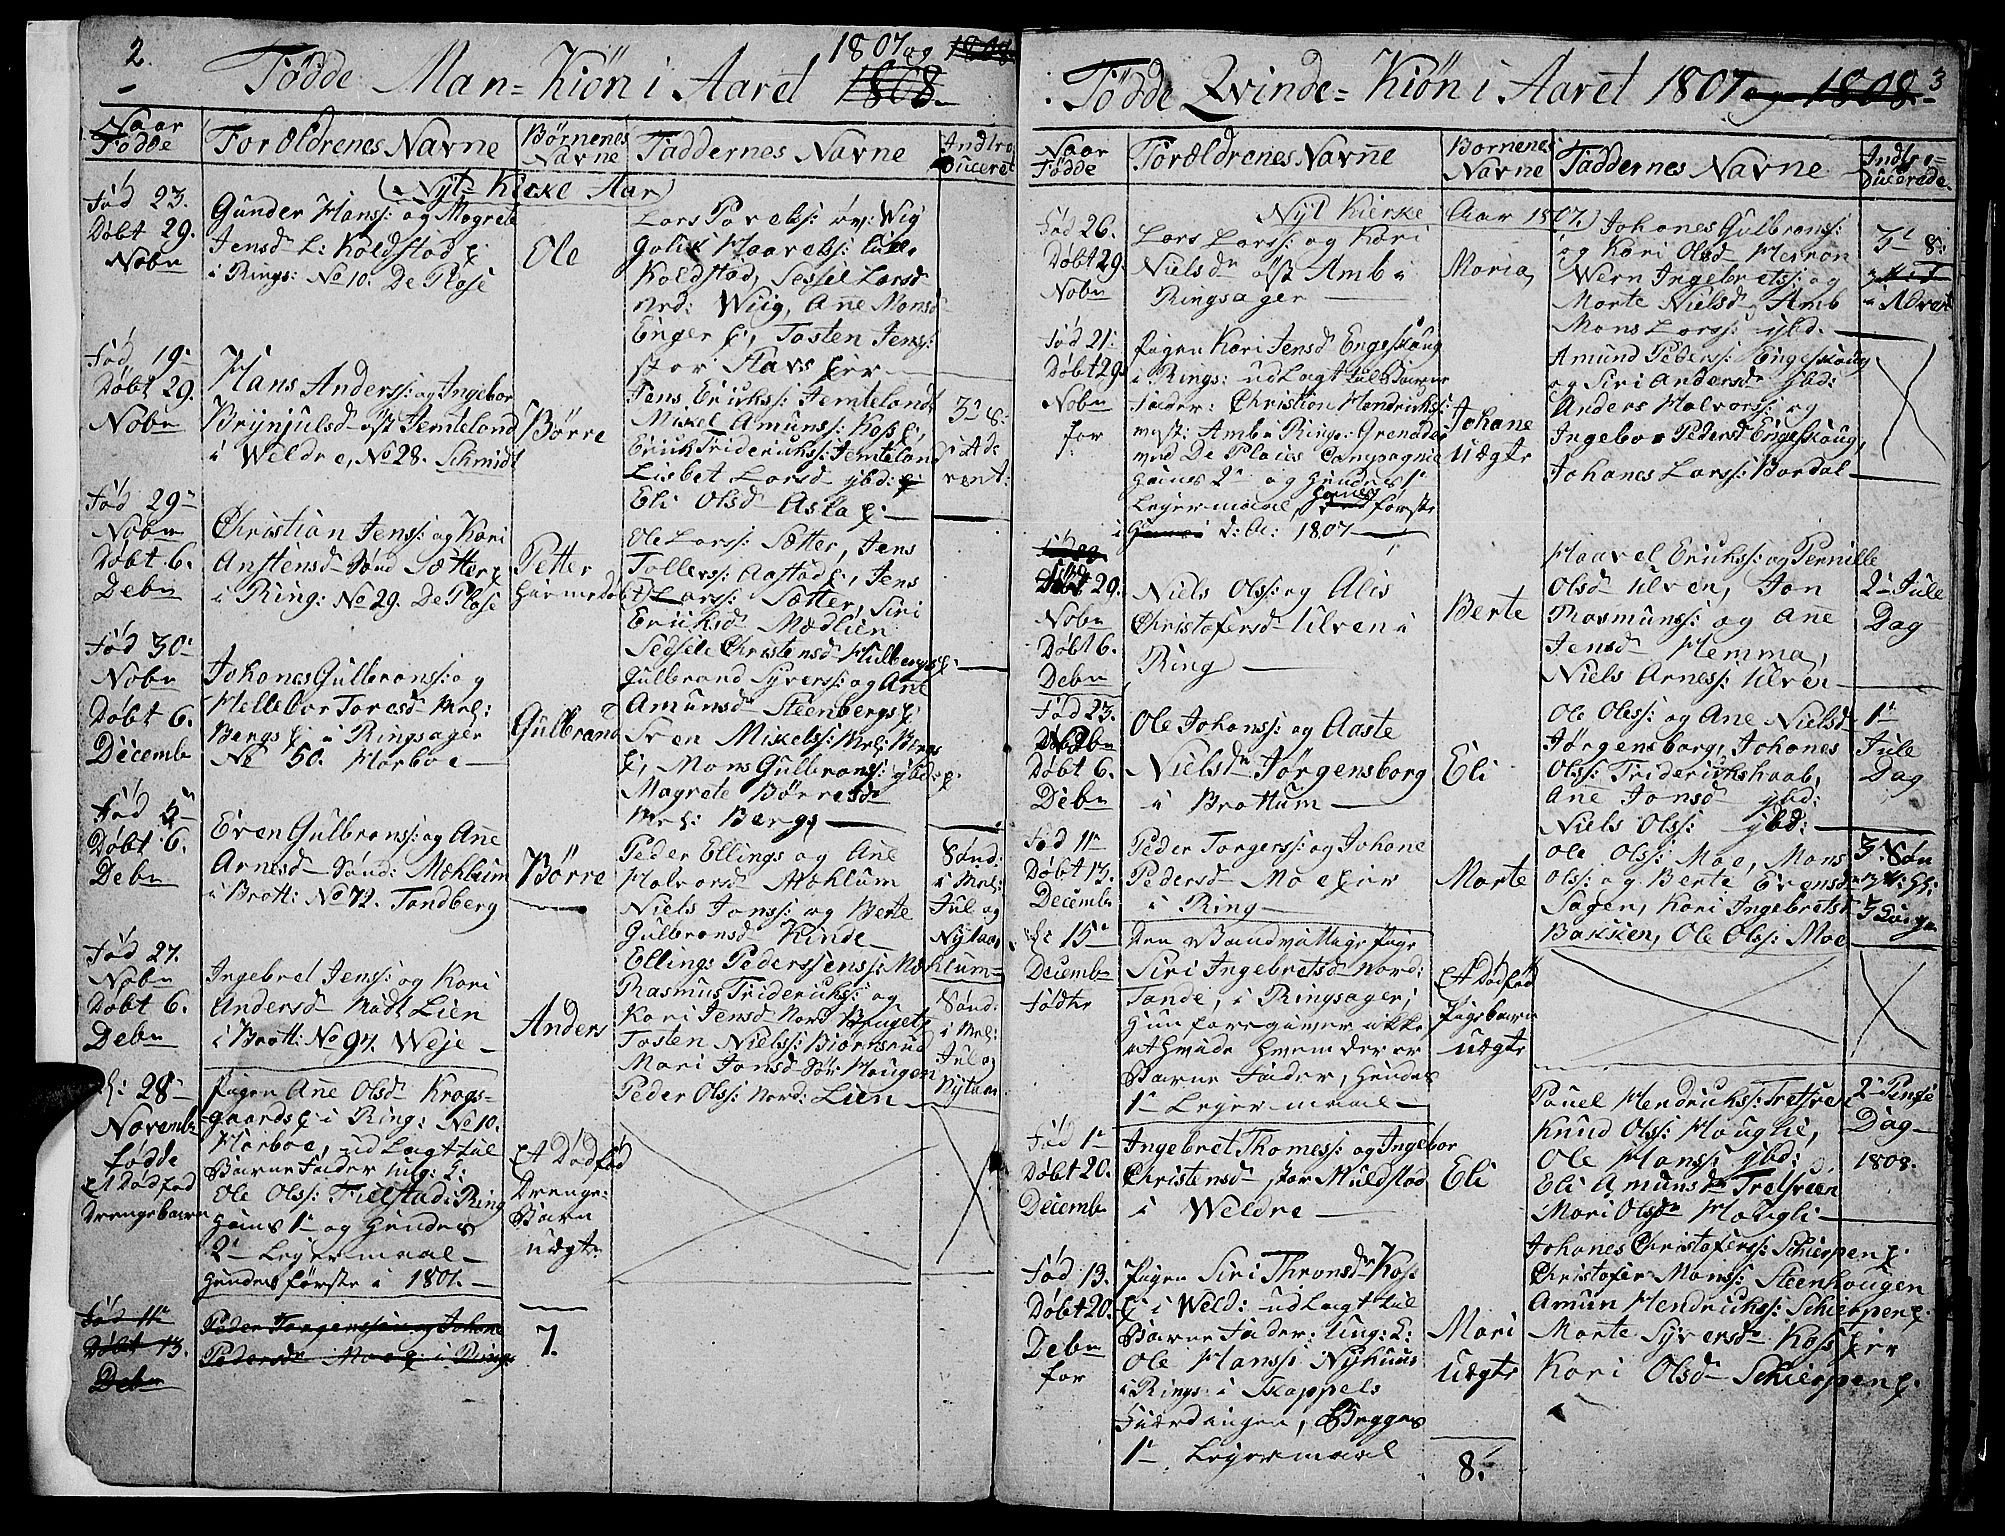 2.
Födde Man=Kiön i Aaret 1807 og 1808
Naar Fødde
Forældrenes Navne
Børnenes Navne
Faddernes Navne
Introduceret
(Nyt=Kirke Aar)
Fød 23.
Døbt 29.
Nobr
Gunder Hanss: og Magrete
Jensdr L: Koldstad
i Rings: No 10. De Place
Ole
Lars Povelss:
Haavelss: Lille
Koldstad, Sessel Larsd
Wiig, Ane Monsd
Enger, Tosten Jenss:
stor Stavs
Fød 19-
Døbt 29.
Nobr
Hans Anderss: og Ingebor
Brynjulsd øst Jemteland
i Weldre, No 28. Schmidt
Børre
Jens Erickss: Jemteland
Mikel Amunss: Koss
Erich Friderickss: Jemteland
Lisbet Larsd ybd:
Eli Olsd Asla
Fød 29-
Nobr
Døbt 6.
Debr
Christian Jenss: og Kari
Anstensd Sønd Sætter
i Ring: No 29. De Place
Petter
Hiemedøbt
Ole Larss: Sætter, Jens
Tollerss: Aastad, Jens
Larss: Sætter, Siri
Ericksd Mædlien
Sedsele Christensd Hulbergs
Fød 30-
Nobr
Døbt 6.
Decembr
Johanes Gulbranss: og
Hellebor Toresd Mel:
Bergs i Ringsager
No 50. Harboe
Gulbrand
Gulbrand Syverss: og Ane
Amunsdr Steenbergs
Iven Mikelss: Mel: Bergs
Mons Gulbranss: ybd:
Magrete Børresd
Mel: Bergs
Fød 5-
Døbt 6.
Debr
Even Gulbranss: og Ane
Arnesd Sønd: Mæhlum
i Brøtt: No 72. Tandberg
Børre
Peder Ellings og Ane
Halvorsd Mæhlum
Niels Jonss: og Berte
Gulbransd Kinde
Ellings Pederssens: Mæhlum
Sønd:
i Mel:
Jul og
Nytaar
Fød 27.
Nobr
Døbt 6.
Debr
Ingebret Jenss: og Kari
Andersd Madt Lien
i Brøtt: No 94. Weje
Anders
Rasmus Friderickss: og
Kari Jensd Nord
Tosten Nielss: Biørnsrud
Mari Jonsd Sør Haugen
Peder Olss: Nord: Lien
Sønd:
i Mel:
Jul og
Nytaar
28-
Novembr
fødde
et Dødfød
Drengebarn
Pigen Ane Olsd Krogs-
gaards i Ring: No 10.
Harboe, udlagt til
Barnefader
Ole Olss: Fillstad: Ring
Hans 1- og Hendes
2- Leyermaal
Hendes første i 1801.
Et Dødfød
Drenge:
Barn
uægte
Fød 11-
Døbt 13.
Debr
Peder Torgerssen og Johane
Pedersdr Moe i Rings
7.
3
Födde Qvinde=Kiön i Aaret 1807 og 1808.
Naar Fødde
Forældrenes Navne
Børnenes Navne
Faddernes Navne
Introducerede
Nyt Kierke Aar 1807.
Fød 26.
Døbt 29.
Nobr
Lars Larss: og Kari
Nielsdr øst Amb i
Ringsager
Maria
Johanes Gulbranss:
og Kari Olsd Messon
Wern Ingebretss: og
Marte Nielsd Amb
Mons Larss: ybd.
Fød 21-
Døbt 29.
Nobr
for
Pigen Kari Jensd Engeskoug
i Rings: udlagt til Barne
Fader: Christian Hendrickss:
west: Amb i Rings: Grenader
ved De Places Compagnie
Hans 2- og Hendes 1-
Leyermaal, første
i d: A: 1807
Johane
uægte
Amund Pederss: Engeskoug
og Siri Andersd ybd:
Anders Halvorss: og
Ingebor Pedersd Engeskoug,
Johanes Larss: Bardal
29.
Nobr
Døbt 6.
Debr
Niels Olss: og Alis
Christofersd Ulven i
Ring
Berte
Haavel Erickss: og Pernille
Olsd Ulven, Jon
Rasmunss: og Ane
Jensd Hemma,
Niels Arness: Ulven
2- Jule
Dag
Fød 23.
Nobr
Døbt 6.
Debr
Ole Johanss: og Aaste
Nielsdr Jørgensborg
i Brøttum
Eli
Ole Oless: og Ane Nielsd
Jørgensborg, Johanes
Olss: Friderickshaab,
Ane Jonsd ybd:
Niels Olss: ybd:
1-
Jule
Dag
Fød 11-
Døbt 13.
Decembr
Peder Torgerss: og Johane
Pedersd Moe
i Ring
Marte
Ole Olss: Moe, Mons
Olss: og Berte Evensd
Sager, Kari Ingebretsd
Bakken, Ole Olss: Moe
15-
Decembr
Fødte
Den Vanvittige Pige
Siri Ingebretsd Nord:
Tande, i Ringsager,
Hun foregiver ikke
at vide hvem der er
Barne Fader, Hendes
1- Leyermaal
Et Dødfød
Pigebarn
uægte
Fød 1-
Døbt 20.
Decembr
Ingebret Thomess: og Ingebor
Christensd stor Muldstad
i Weldre
Eli
Pouel Hendrickss: Tretsveen
Knud Olss: Haugli,
Ole Hanss: ybd:
Eli Amunsd Tretsveen
Mari Olsd Haugli
2- Pintse
Dag
1808.
Fød 19.
Døbt 20.
Debr
for
Pigen Siri Thronsdr Koss
i Weld: udlagt til
Barne Fader: ung: k:
Ole Hanss: Nyhuus
i Rings: i Skappels
Fierdingen, Begges
1- Leyermaal
Mari
uægte
Johanes Christoferss: Schierpen
Christofer Monss: Steenhougen
Amun Hendrickss: Schierpen
Marte Syversdr Koss
Kari Olsd Schierpen
8.